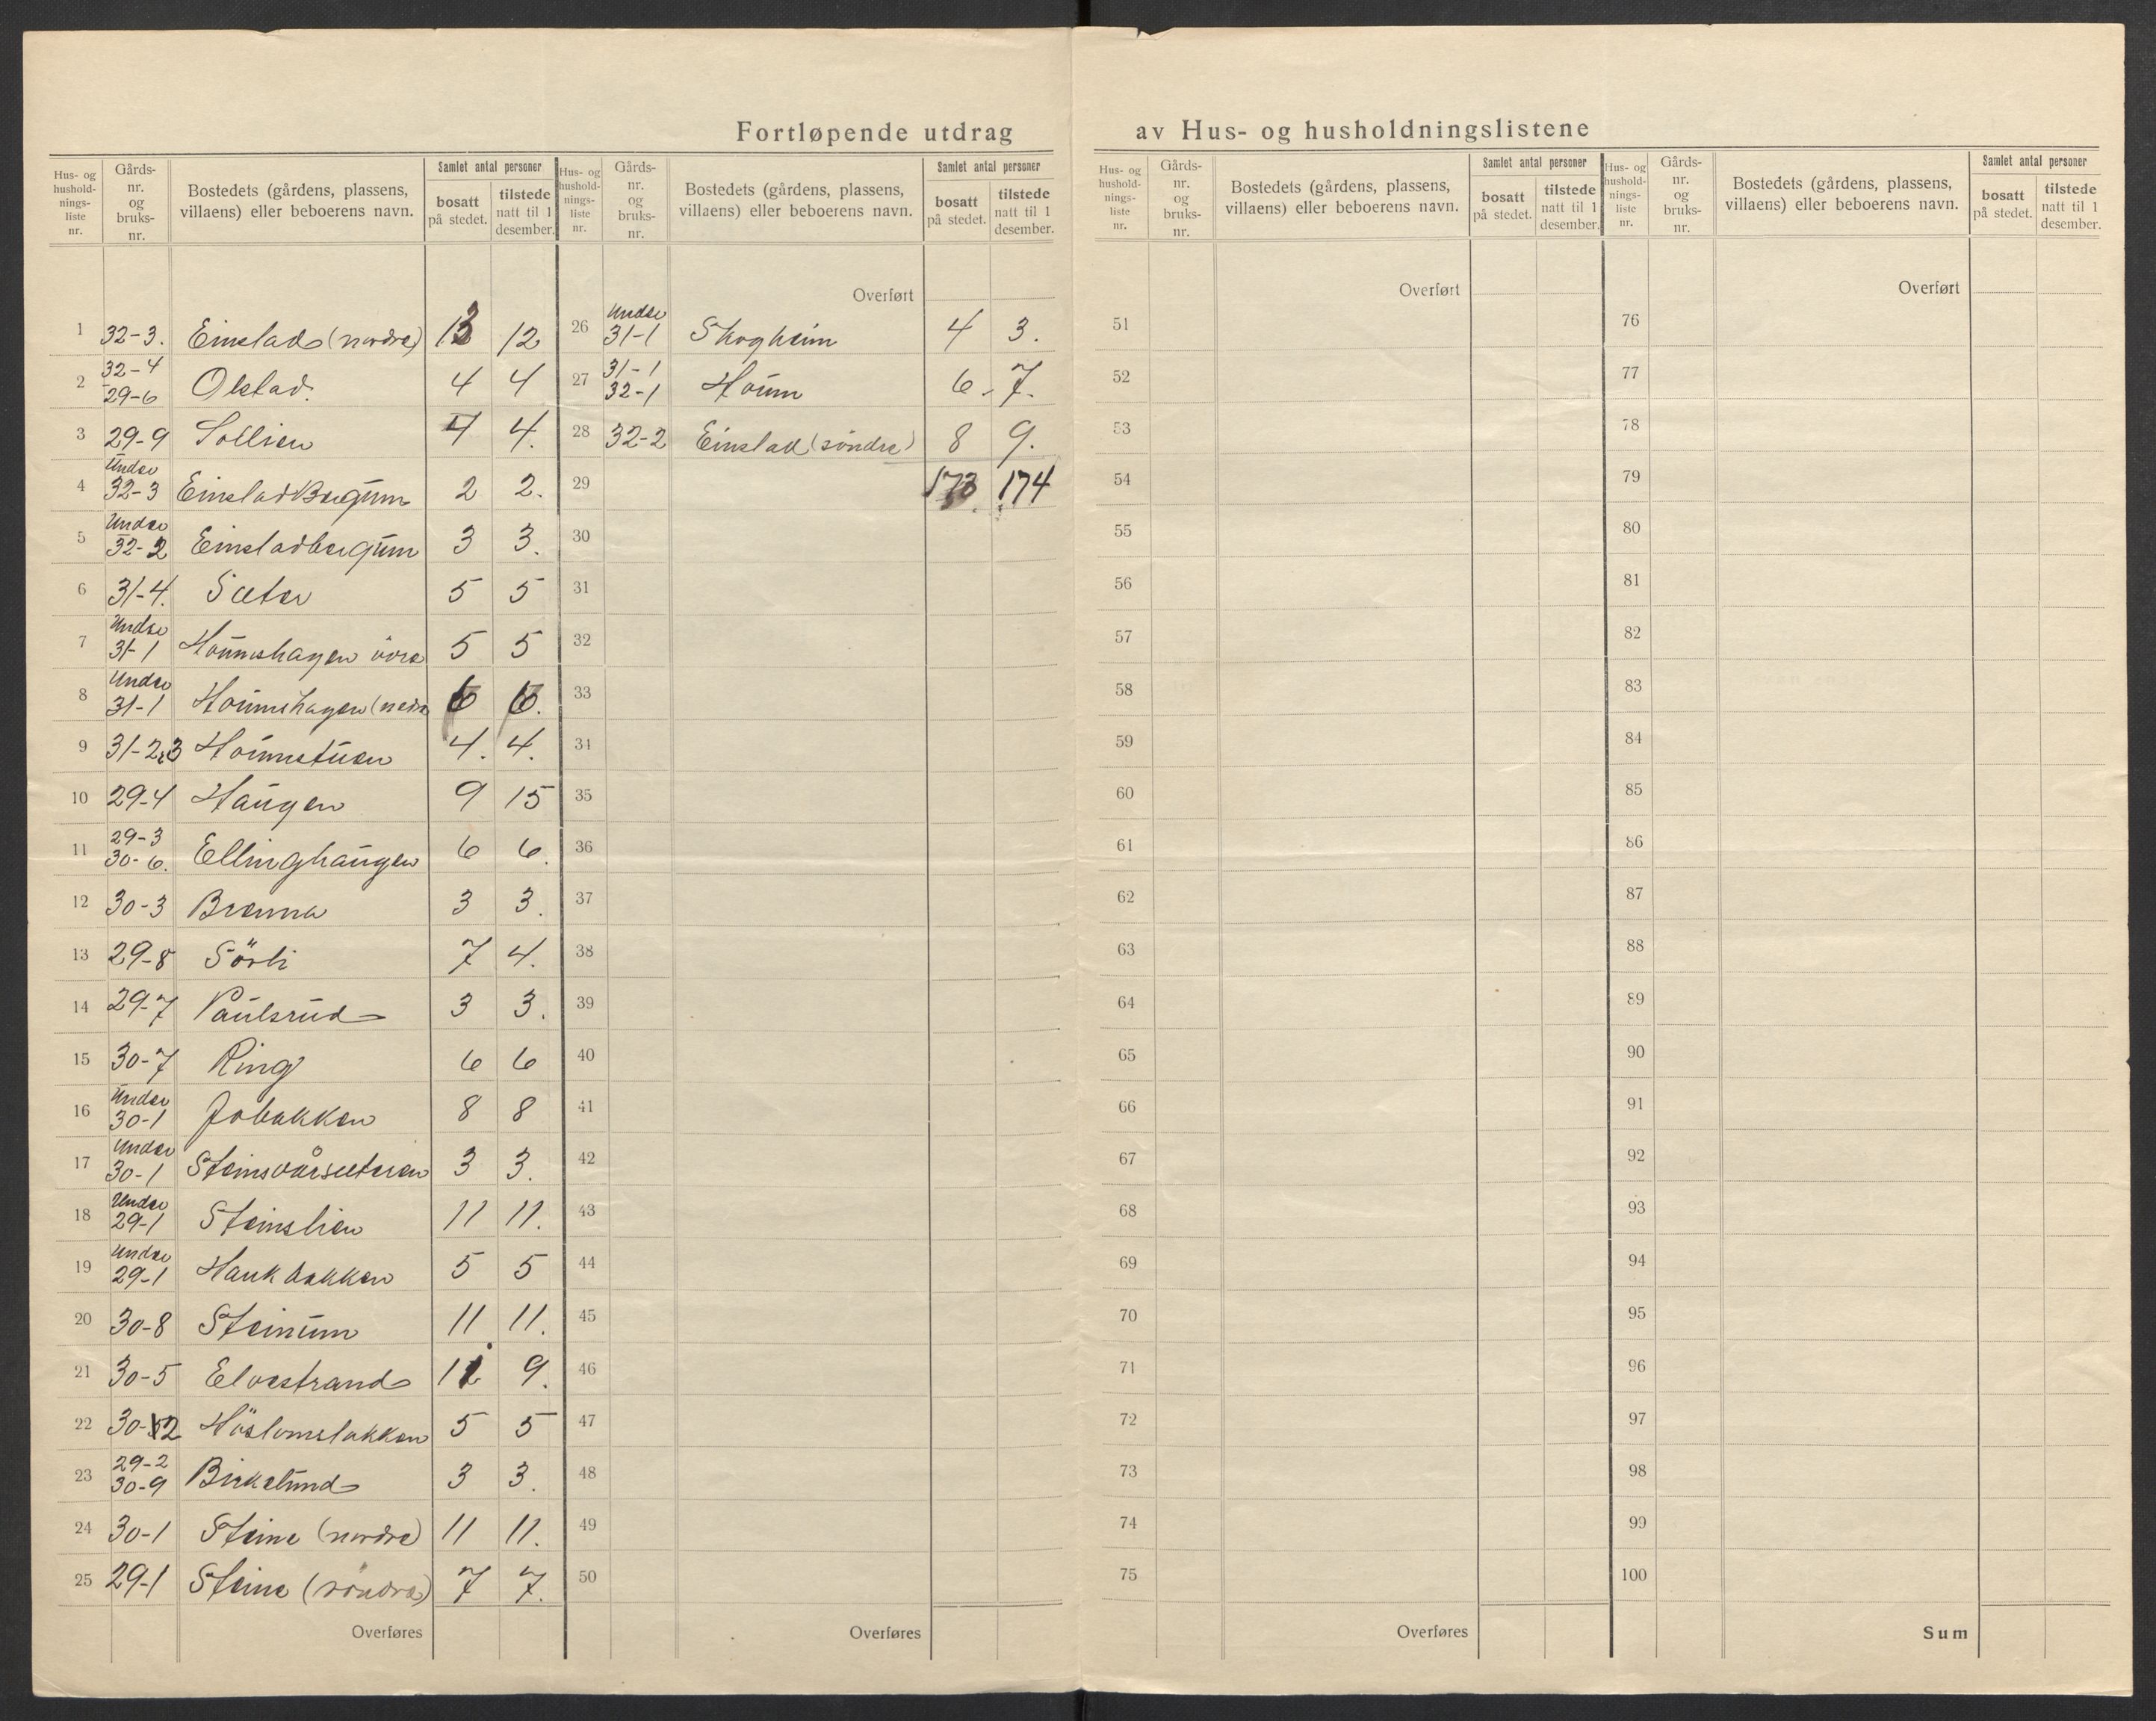 Fortløpende utdrag av Hus- og husholdningslistene
Hus- og husholdnings-liste nr. | Gårds-nr. og bruks-nr. | Bostedets (gårdens, plassens, villaens) eller beboerens navn. | Samlet antal personer | bosatt på stedet. | tilstede natt til 1 desember.
1 32-3. Einstad (nordre) 13 12
2 32-4 29-6 Olstad. 4 4
3 29-9 Sollien 4 4.
4 Under 32-3 Einstad Bergum 2 2.
5 Under 32-2 Einstadbergum 3 3.
6 31-4. Sæter 5 5
7 Under 31-1 Hounshagen övre 5 5
8 Under 31-1 Hounshagen (nedre 6 6.
9 31-2,3 Hounstuen 4. 4.
10 29-4 Haugen 9 15
11 29-3 30-6. Ellinghaugen 6 6.
12 30-3 Brenna 3 3.
13 29-8 Sörli 7 4.
14 29-7 Paulsrud 3 3.
15 30-7 Ring 6 6
16 Under 30-1 Jobakken 8 8
17 Under 30-1 Steinsvårseteren 3 3.
18 Under 29-1 Steinslien 11 11.
19 Under 29-1 Haukbakken 5 5
20 30-8 Steinum 11 11.
21 30-5 Elvestrand 11 9.
22 30-12 5 5
23 29-2 30-9 Birkelund 3 3.
24 30-1 Steine (nordre) 11 11.
25 29-1 Steine (söndre) 7 7.
Overføres
Hus- og husholdnings-liste nr. | Gårds-nr. og bruks-nr. | Bostedets (gårdens, plassens, villaens) eller beboerens navn. | Samlet antal personer | bosatt på stedet. | tilstede natt til 1 desember.
Overført
26 Under 31-1 Skogheim 4 3.
27 31-1 32-1 Houm 6. 7.
28 32-2 Einstad (söndre) 8 9.
29 173 174
30
31
32
33
34
35
36
37
38
39
40
41
42
43
44
45
46
47
48
49
50
Overføres
Hus- og husholdnings-liste nr. | Gårds-nr. og bruks-nr. | Bostedets (gårdens, plassens, villaens) eller beboerens navn. | Samlet antal personer | bosatt på stedet. | tilstede natt til 1 desember.
Overført
51
52
53
54
55
56
57
58
59
60
61
62
63
64
65
66
67
68
69
70
71
72
73
74
75
Overføres
Hus- og husholdnings-liste nr. | Gårds-nr. og bruks-nr. | Bostedets (gårdens, plassens, villaens) eller beboerens navn. | Samlet antal personer | bosatt på stedet. | tilstede natt til 1 desember.
Overført
76
77
78
79
80
81
82
83
84
85
86
87
88
89
90
91
92
93
94
95
96
97
98
99
100
Sum